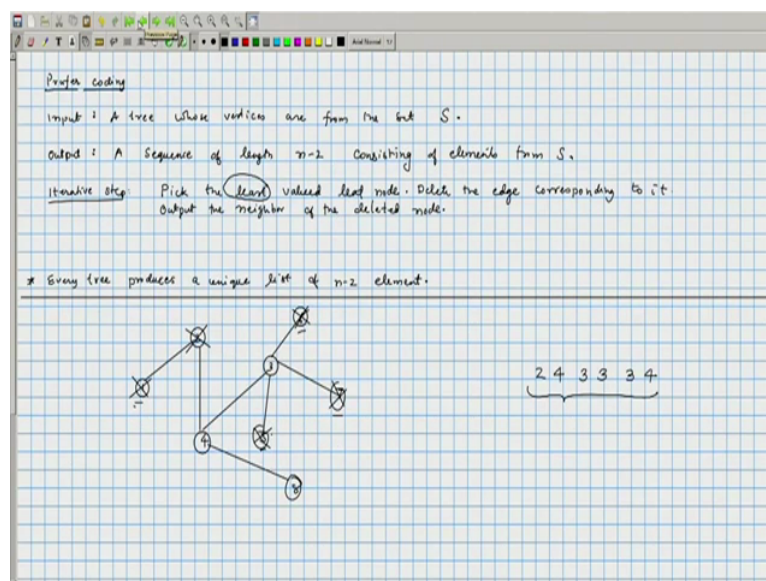 Prufer coding
Input : A tree whose vertices are from the set S.
Output : A sequence of length n-2 consisting of elements from S.
Iterative step: Pick the least valued leaf node. Delete the edge corresponding to it.
Output the neighbor of the deleted node.
* Every tree produces a unique list of n-2 element.
3
2 4 3 3 3 4
4
8